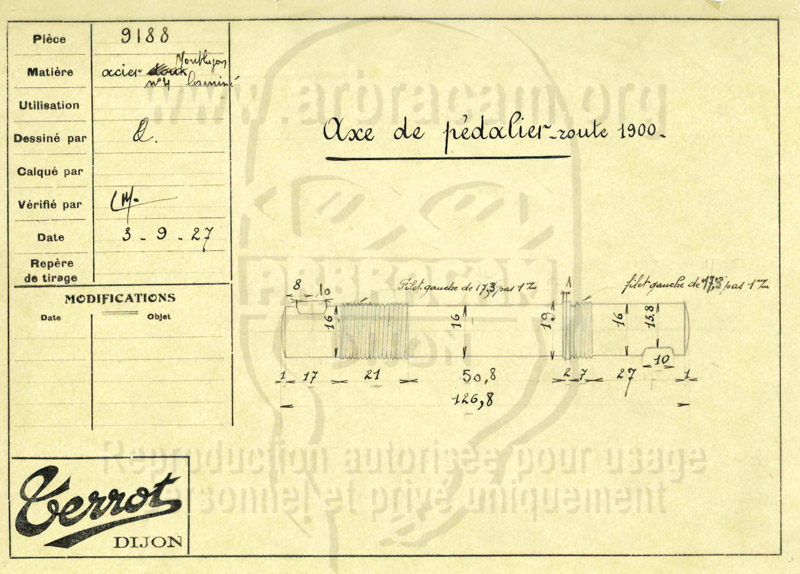 Pièce 9188
Matière acier doux Montluçon
n°4 laminé
Utilisation
Dessiné par
Calqué par
Vérifié par
Date 3-9-27
Repère
de tirage
MODIFICATIONS
Date Objet
Axe de pédalier-route 1900-
8 10
Filet gauche de 17,3 pas 1 m/m
filet gauche de 17,3 pas 1 m/m
16 16 19 16 13,8
10
1 17 21 50,8 2 7 27 1
126,8
Terrot
DIJON
www.arbracam.org
ARBRACAM
DIJON
Reproduction autorisée pour usage
personnel et privé uniquement